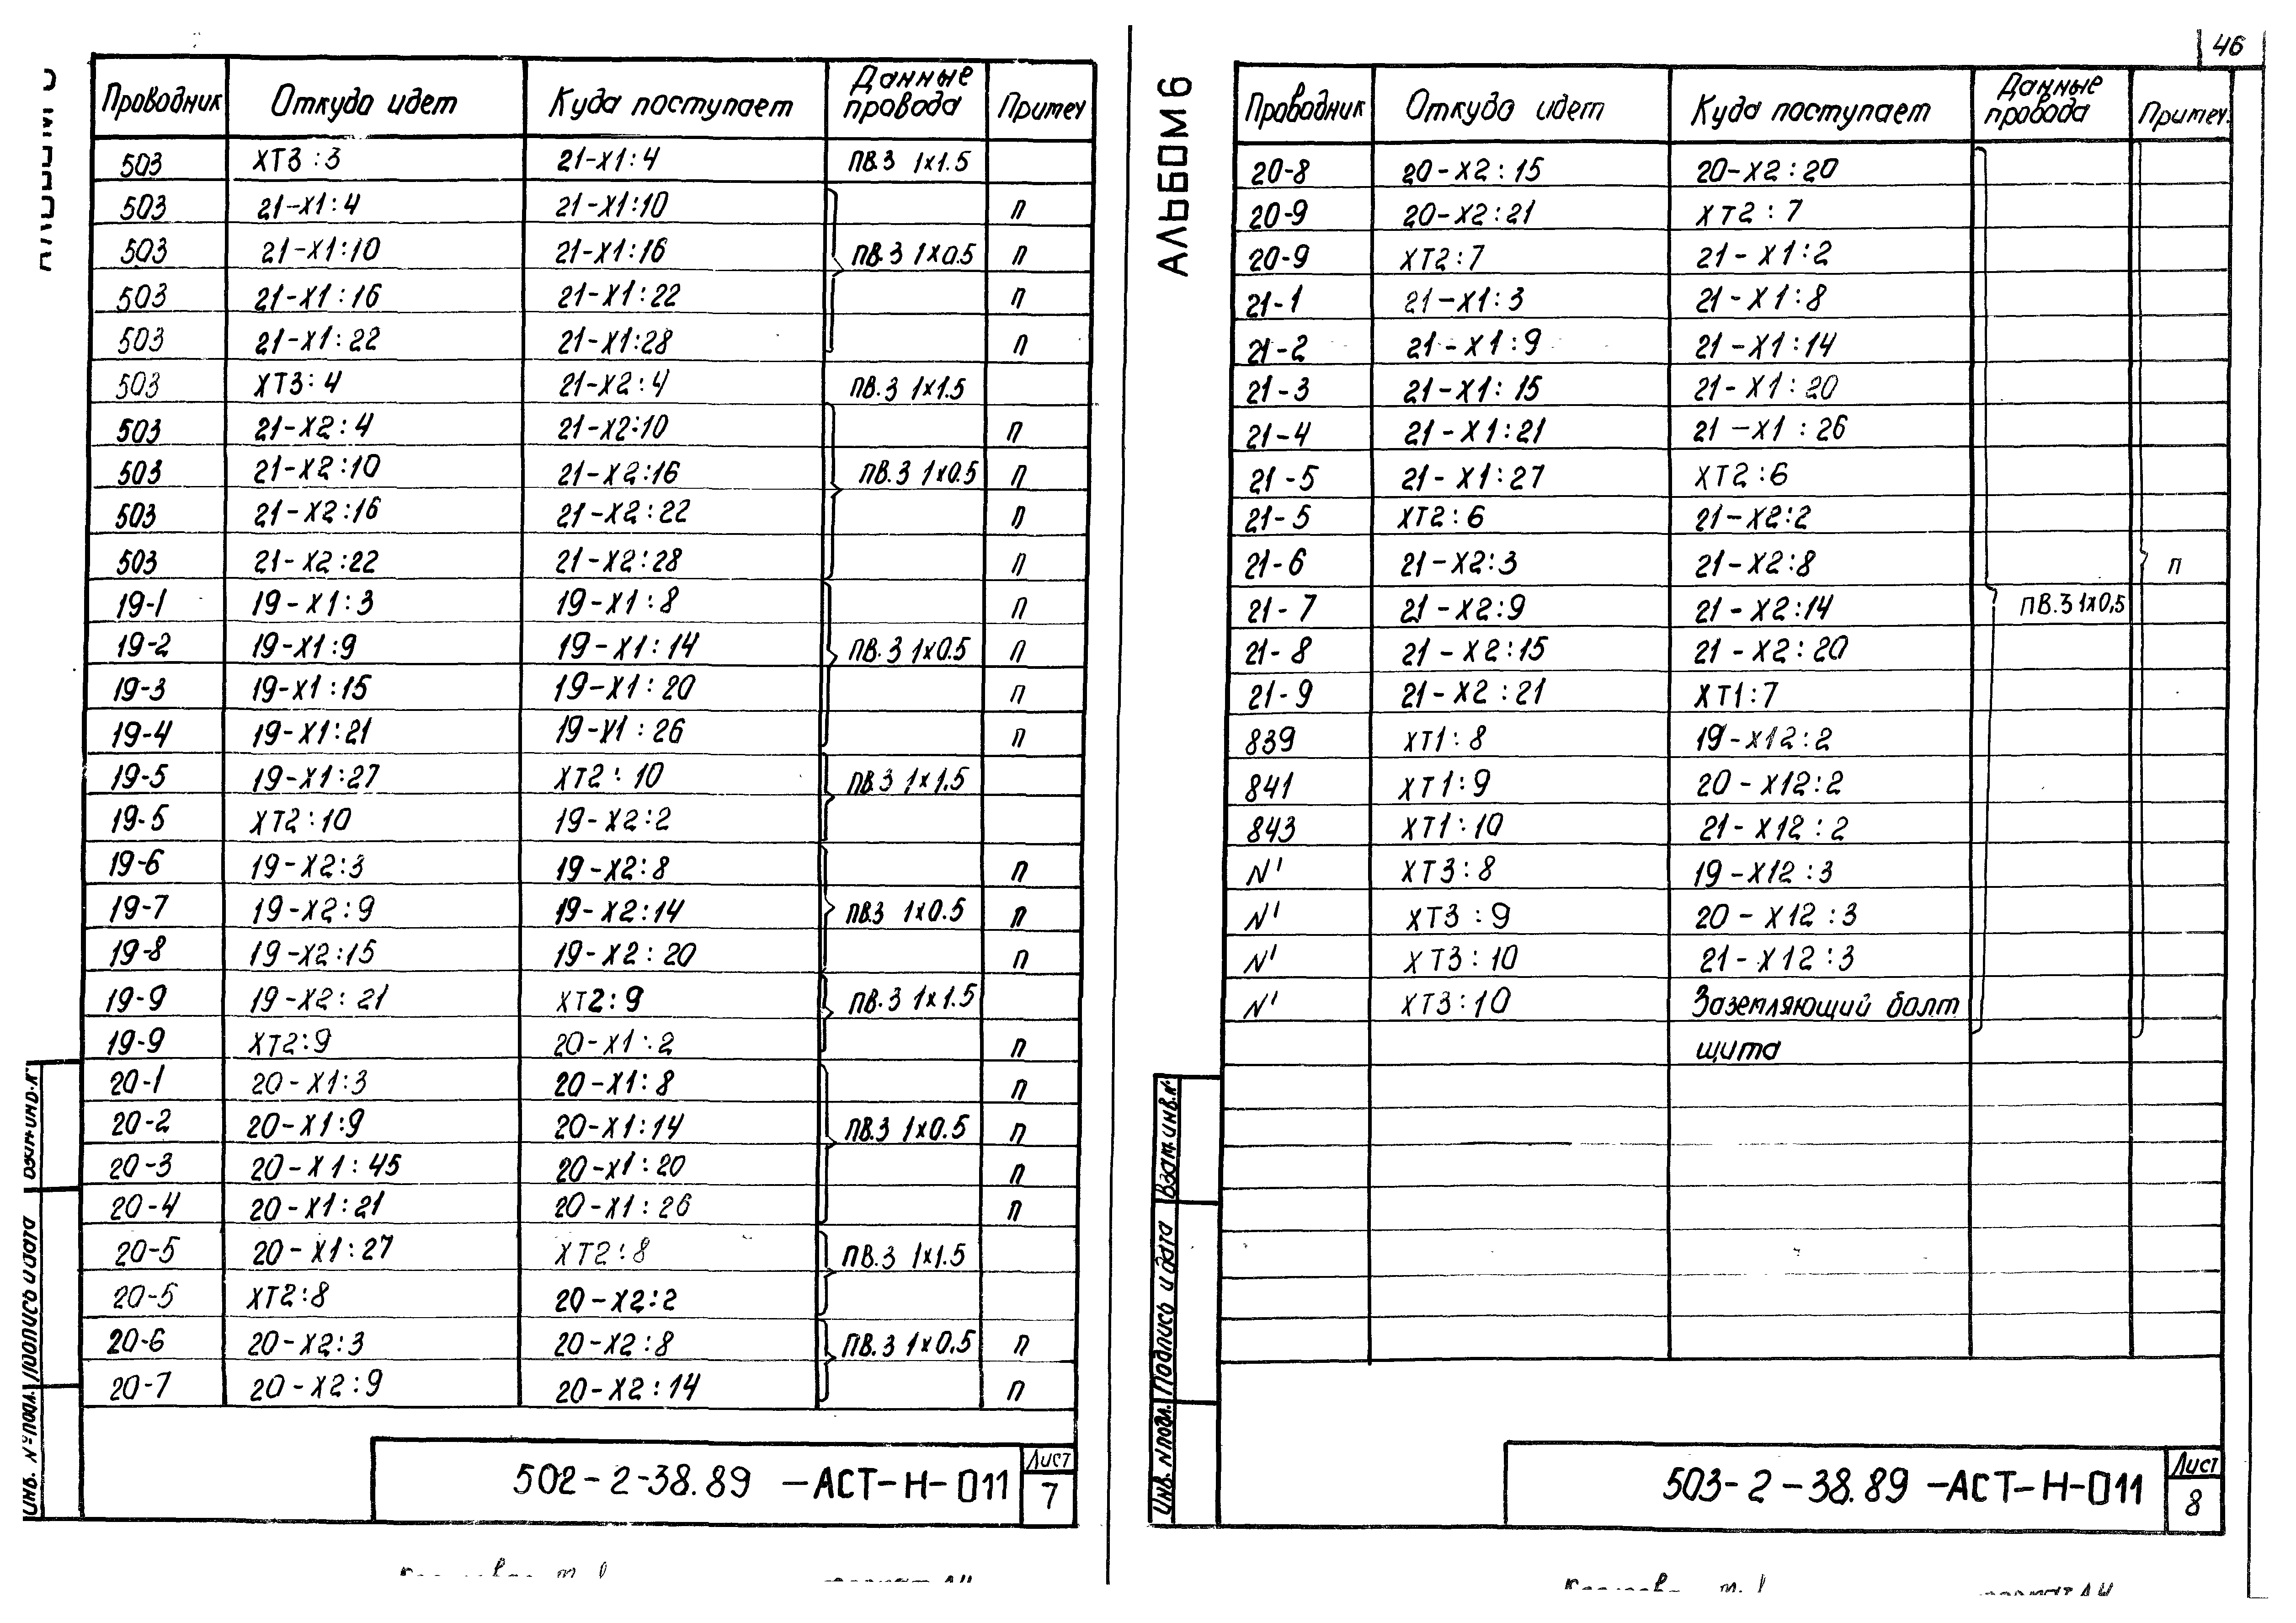 Проводник Откуда идет Куда поступает Данные провода Примеч
503 ХТ3:3 21-Х1:4 ПВ.3 1х1.5
503 21-Х1:4 21-Х1:10 П
503 21-Х1:10 21-Х1:16 ПВ.3 1х0.5 П
503 21-Х1:16 21-Х1:22 П
503 21-Х1:22 21-Х1:28 П
503 ХТ3:4 21-Х2:4 ПВ.3 1х1.5
503 21-Х2:4 21-Х2:10 П
503 21-Х2:10 21-Х2:16 ПВ.3 1х0.5 П
503 21-Х2:16 21-Х2:22 П
503 21-Х2:22 21-Х2:28 П
19-1 19-Х1:3 19-Х1:8 П
19-2 19-Х1:9 19-Х1:14 ПВ.3 1х0.5 П
19-3 19-Х1:15 19-Х1:20 П
19-4 19-Х1:21 19-Х1:26 П
19-5 19-Х1:27 ХТ2:10 ПВ.3 1х1.5
19-5 ХТ2:10 19-Х2:2
19-6 19-Х2:3 19-Х2:8 П
19-7 19-Х2:9 19-Х2:14 ПВ.3 1х0.5 П
19-8 19-Х2:15 19-Х2:20 П
19-9 19-Х2:21 ХТ2:9 ПВ.3 1х1.5
19-9 ХТ2:9 20-Х1:2 П
20-1 20-Х1:3 20-Х1:8 П
20-2 20-Х1:9 20-Х1:14 ПВ.3 1х0.5 П
20-3 20-Х1:45 20-Х1:20 П
20-4 20-Х1:21 20-Х1:26 П
20-5 20-Х1:27 ХТ2:8 ПВ.3 1х1.5
20-5 ХТ2:8 20-Х2:2
20-6 20-Х2:3 20-Х2:8 ПВ.3 1х0.5 П
20-7 20-Х2:9 20-Х2:14 П
502-2-38.89 -АСТ-Н-011
Лист
7
Инв. №подл.
46
АЛЬБОМ 6
Проводник Откуда идет Куда поступает Данные провода Примеч.
20-8 20-Х2:15 20-Х2:20
20-9 20-Х2:21 ХТ2:7
20-9 ХТ2:7 21-Х1:2
21-1 21-Х1:3 21-Х1:8
21-2 21-Х1:9 21-Х1:14
21-3 21-Х1:15 21-Х1:20
21-4 21-Х1:21 21-Х1:26
21-5 21-Х1:27 ХТ2:6
21-5 ХТ2:6 21-Х2:2
21-6 21-Х2:3 21-Х2:8 П
21-7 21-Х2:9 21-Х2:14 ПВ.3 1х0,5
21-8 21-Х2:15 21-Х2:20
21-9 21-Х2:21 ХТ1:7
839 ХТ1:8 19-Х12:2
841 ХТ1:9 20-Х12:2
843 ХТ1:10 21-Х12:2
N' ХТ3:8 19-Х12:3
N' ХТ3:9 20-Х12:3
N' ХТ3:10 21-Х12:3
N' ХТ3:10 Заземляющий болт
щита
503-2-38.89 -АСТ-Н-011
Лист
8
Инв. N подл. Подпись и дата Взам. инв. №